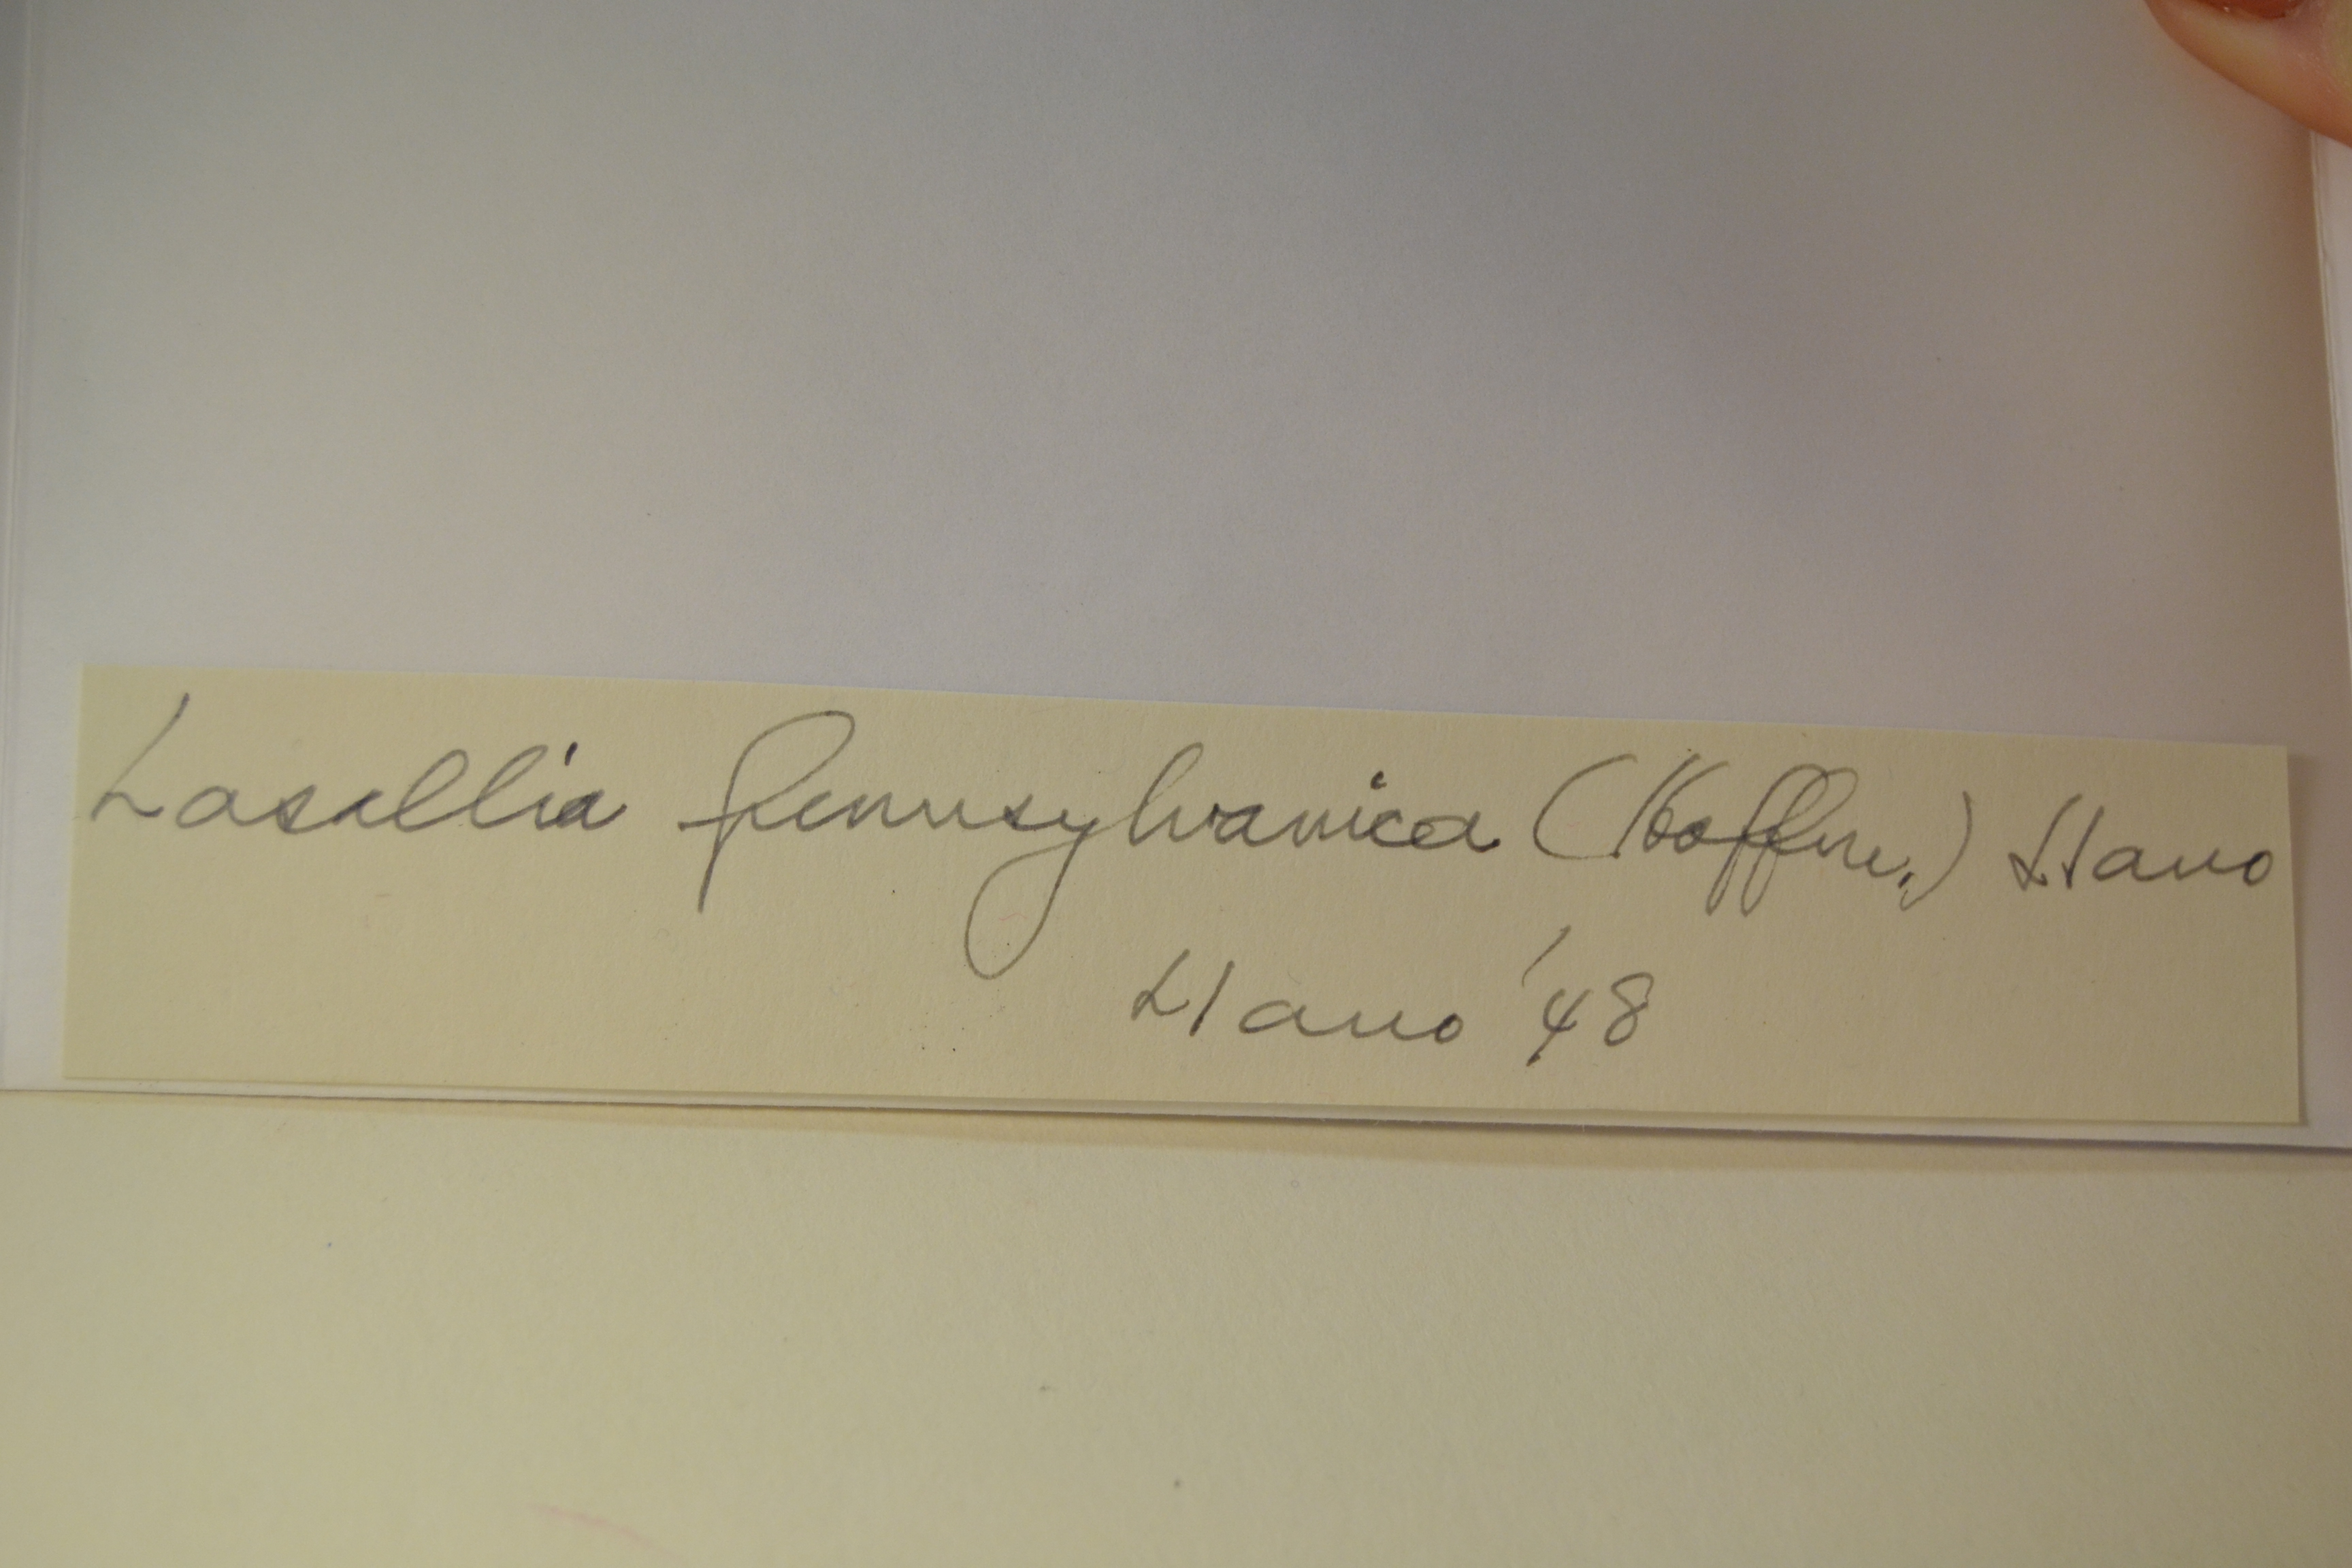 Lasallia pennsylvanica (Hoffm.) Llano
Llano '48